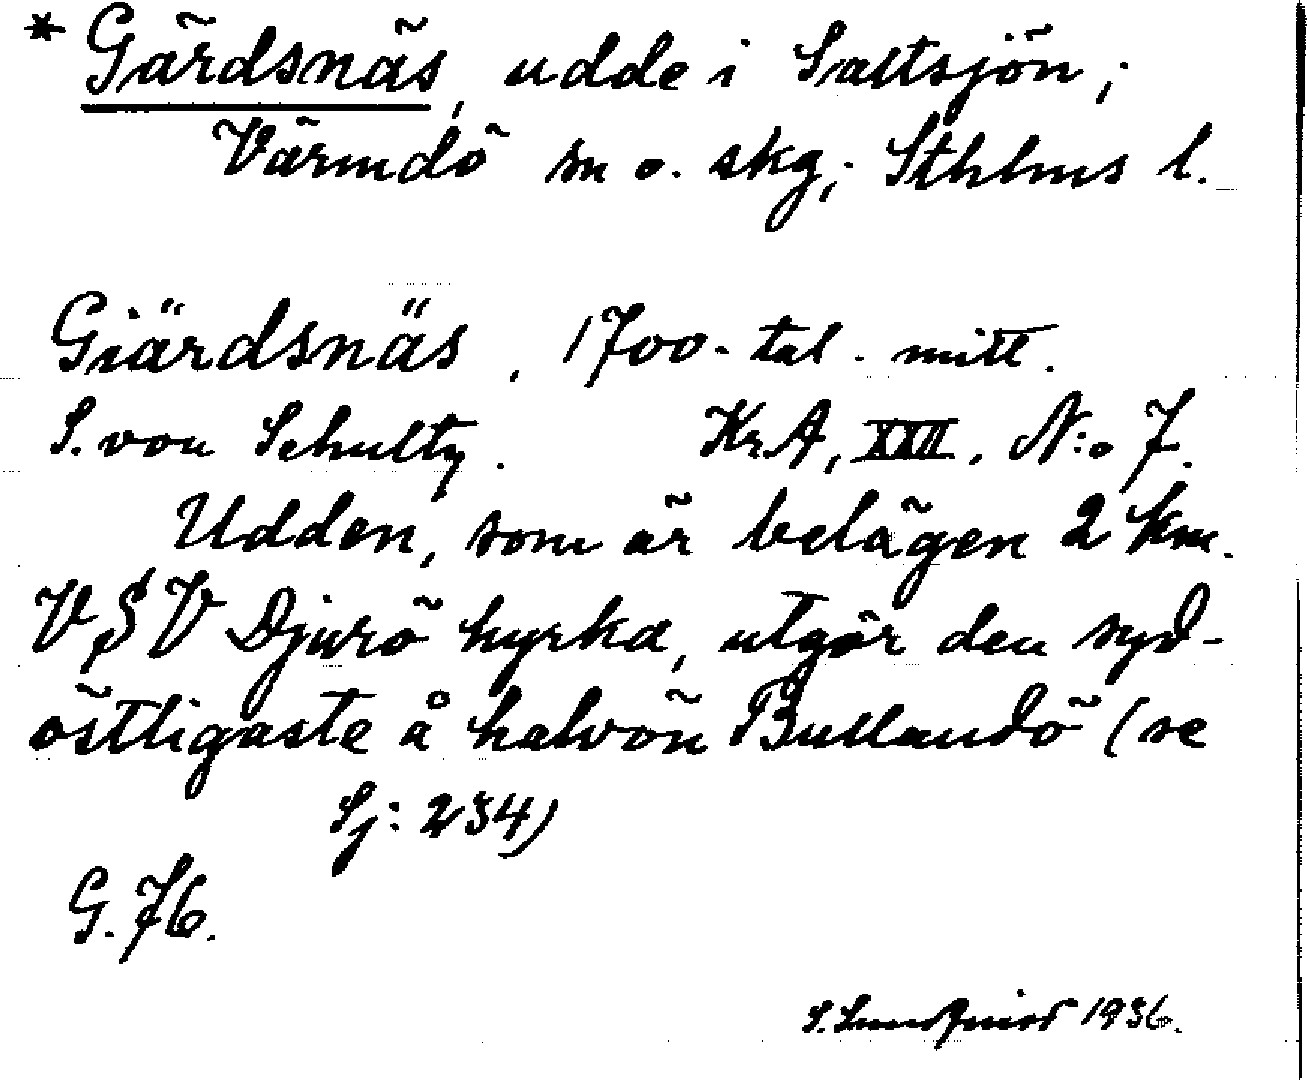 * Gärdsnäs, udde i Saltsjön;
Värmdö sn o. skg; Sthlms l.
Giärdsnäs, 1700-tal. mitt.
S. von Schultz. Kr.A, XXII. N:o 7.
Udden, som är belägen 2 km.
V§V Djurö kyrka, utgör den syd-
östligaste å halvön Bullandö (se
Sj: 234)
G. 76.
S. Lundqvist 1936.